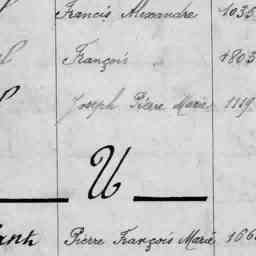 Francis Alexandre 1035
François 1803
Joseph Pierre Marie 1119
U
Pierre François Marie 166